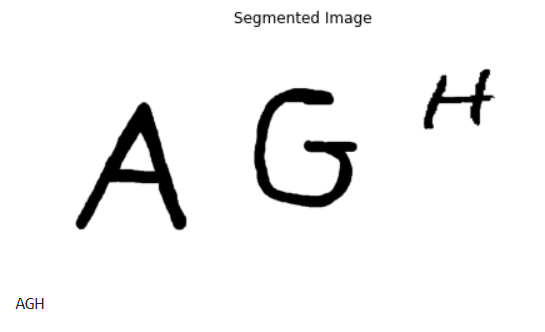 Segmented Image
A G H
AGH